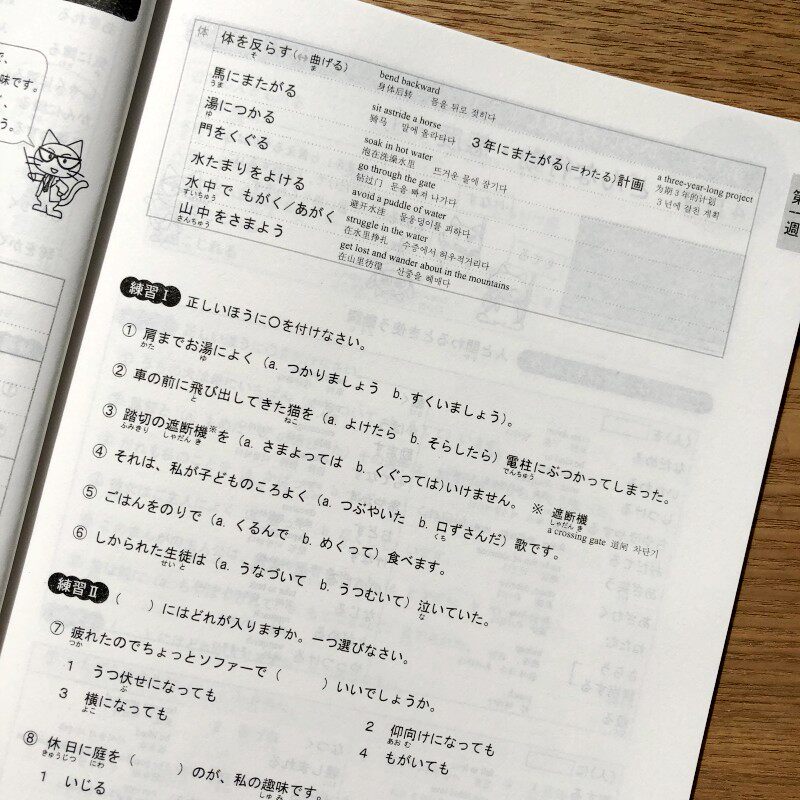 で、
味です。
、
う。
体
体を反らす(↔曲げる)
そ ま
bend backward
身体后转 몸을 뒤로 젖히다
馬にまたがる
うま
sit astride a horse
骑马 말에 올라타다
3年にまたがる(=わたる)計画
a three-year-long project
为期3年的计划
3년에 걸친 계획
湯につかる
ゆ
soak in hot water
泡在洗澡水里 뜨거운 물에 잠기다
門をくぐる
go through the gate
钻过门 문을 빠져 나가다
水たまりをよける
avoid a puddle of water
避开水洼 물웅덩이를 피하다
水中で もがく/あがく
すいちゅう
struggle in the water
在水里挣扎 수중에서 허우적거리다
山中をさまよう
さんちゅう
get lost and wander about in the mountains
在山里彷徨 산중을 헤매다
第
週
練習Ⅰ 正しいほうに〇を付けなさい。
① 肩までお湯によく(a. つかりましょう b. すくいましょう)。
かた ゆ
② 車の前に飛び出してきた猫を(a. よけたら b. そらしたら)電柱にぶつかってしまった。
と ねこ でんちゅう
③ 踏切の遮断機※を(a. さまよっては b. くぐっては)いけません。 ※ 遮断機
ふみきり しゃだんき しゃだんき
a crossing gate 道闸 차단기
④ それは、私が子どものころよく(a. つぶやいた b. 口ずさんだ)歌です。
くち
⑤ ごはんをのりで(a. くるんで b. めくって)食べます。
⑥ しかられた生徒は(a. うなづいて b. うつむいて)泣いていた。
せいと な
練習Ⅱ ( )にはどれが入りますか。一つ選びなさい。
⑦ 疲れたのでちょっとソファーで( )いいでしょうか。
つか
1 うつ伏せになっても
ぶ
2 仰向けになっても
あおむ
3 横になっても
よこ
4 もがいても
⑧ 休日に庭を( )のが、私の趣味です。
きゅうじつ にわ しゅみ
1 いじる